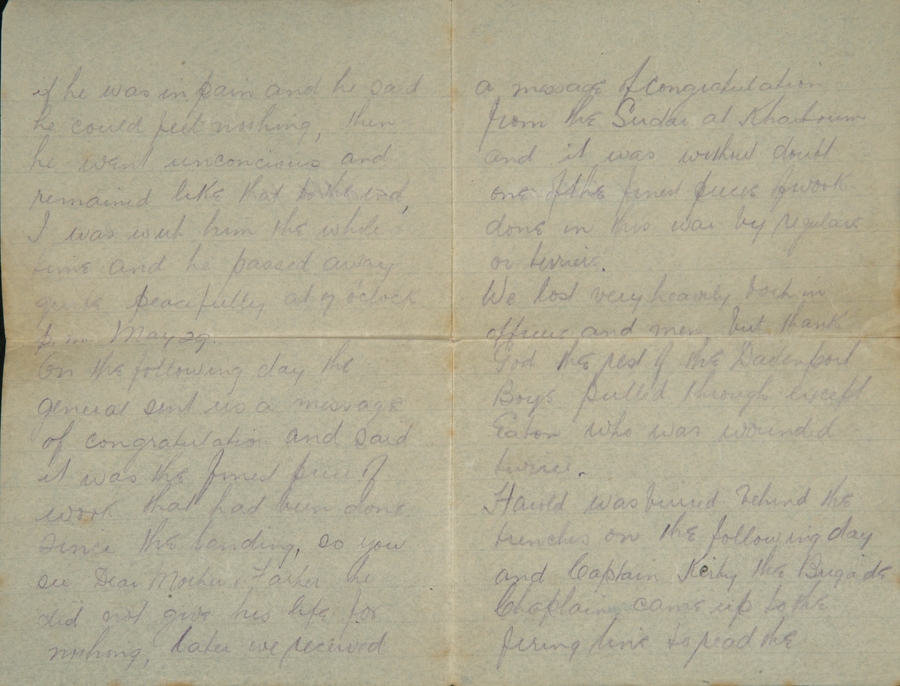 if he was in pain and he said
he could feel nothing, then
he went unconcious and
remained like that to the end,
I was with him the whole
time and he passed away
quite peacefully at 9 oclock
p.m. May 29.
On the following day the
general sent us a message
of congratulation and said
it was the finest piece of
work that had been done
since the landing, so you
see Dear Mother & Father he
did not give his life for
nothing, later we received
a message of congratulation
from the Sudan at Khartoum
and it was without doubt
one of the finest pieces of work
done in this war by regulars
or terriers.
We lost very heavily both in
officers and men but thank
God the rest of the
Boys pulled through except
Eaton who was wounded
twice.
Harold was buried behind the
trenches on the following day
and Captain Kerby the Brigade
Chaplain came up to the
firing line to read the